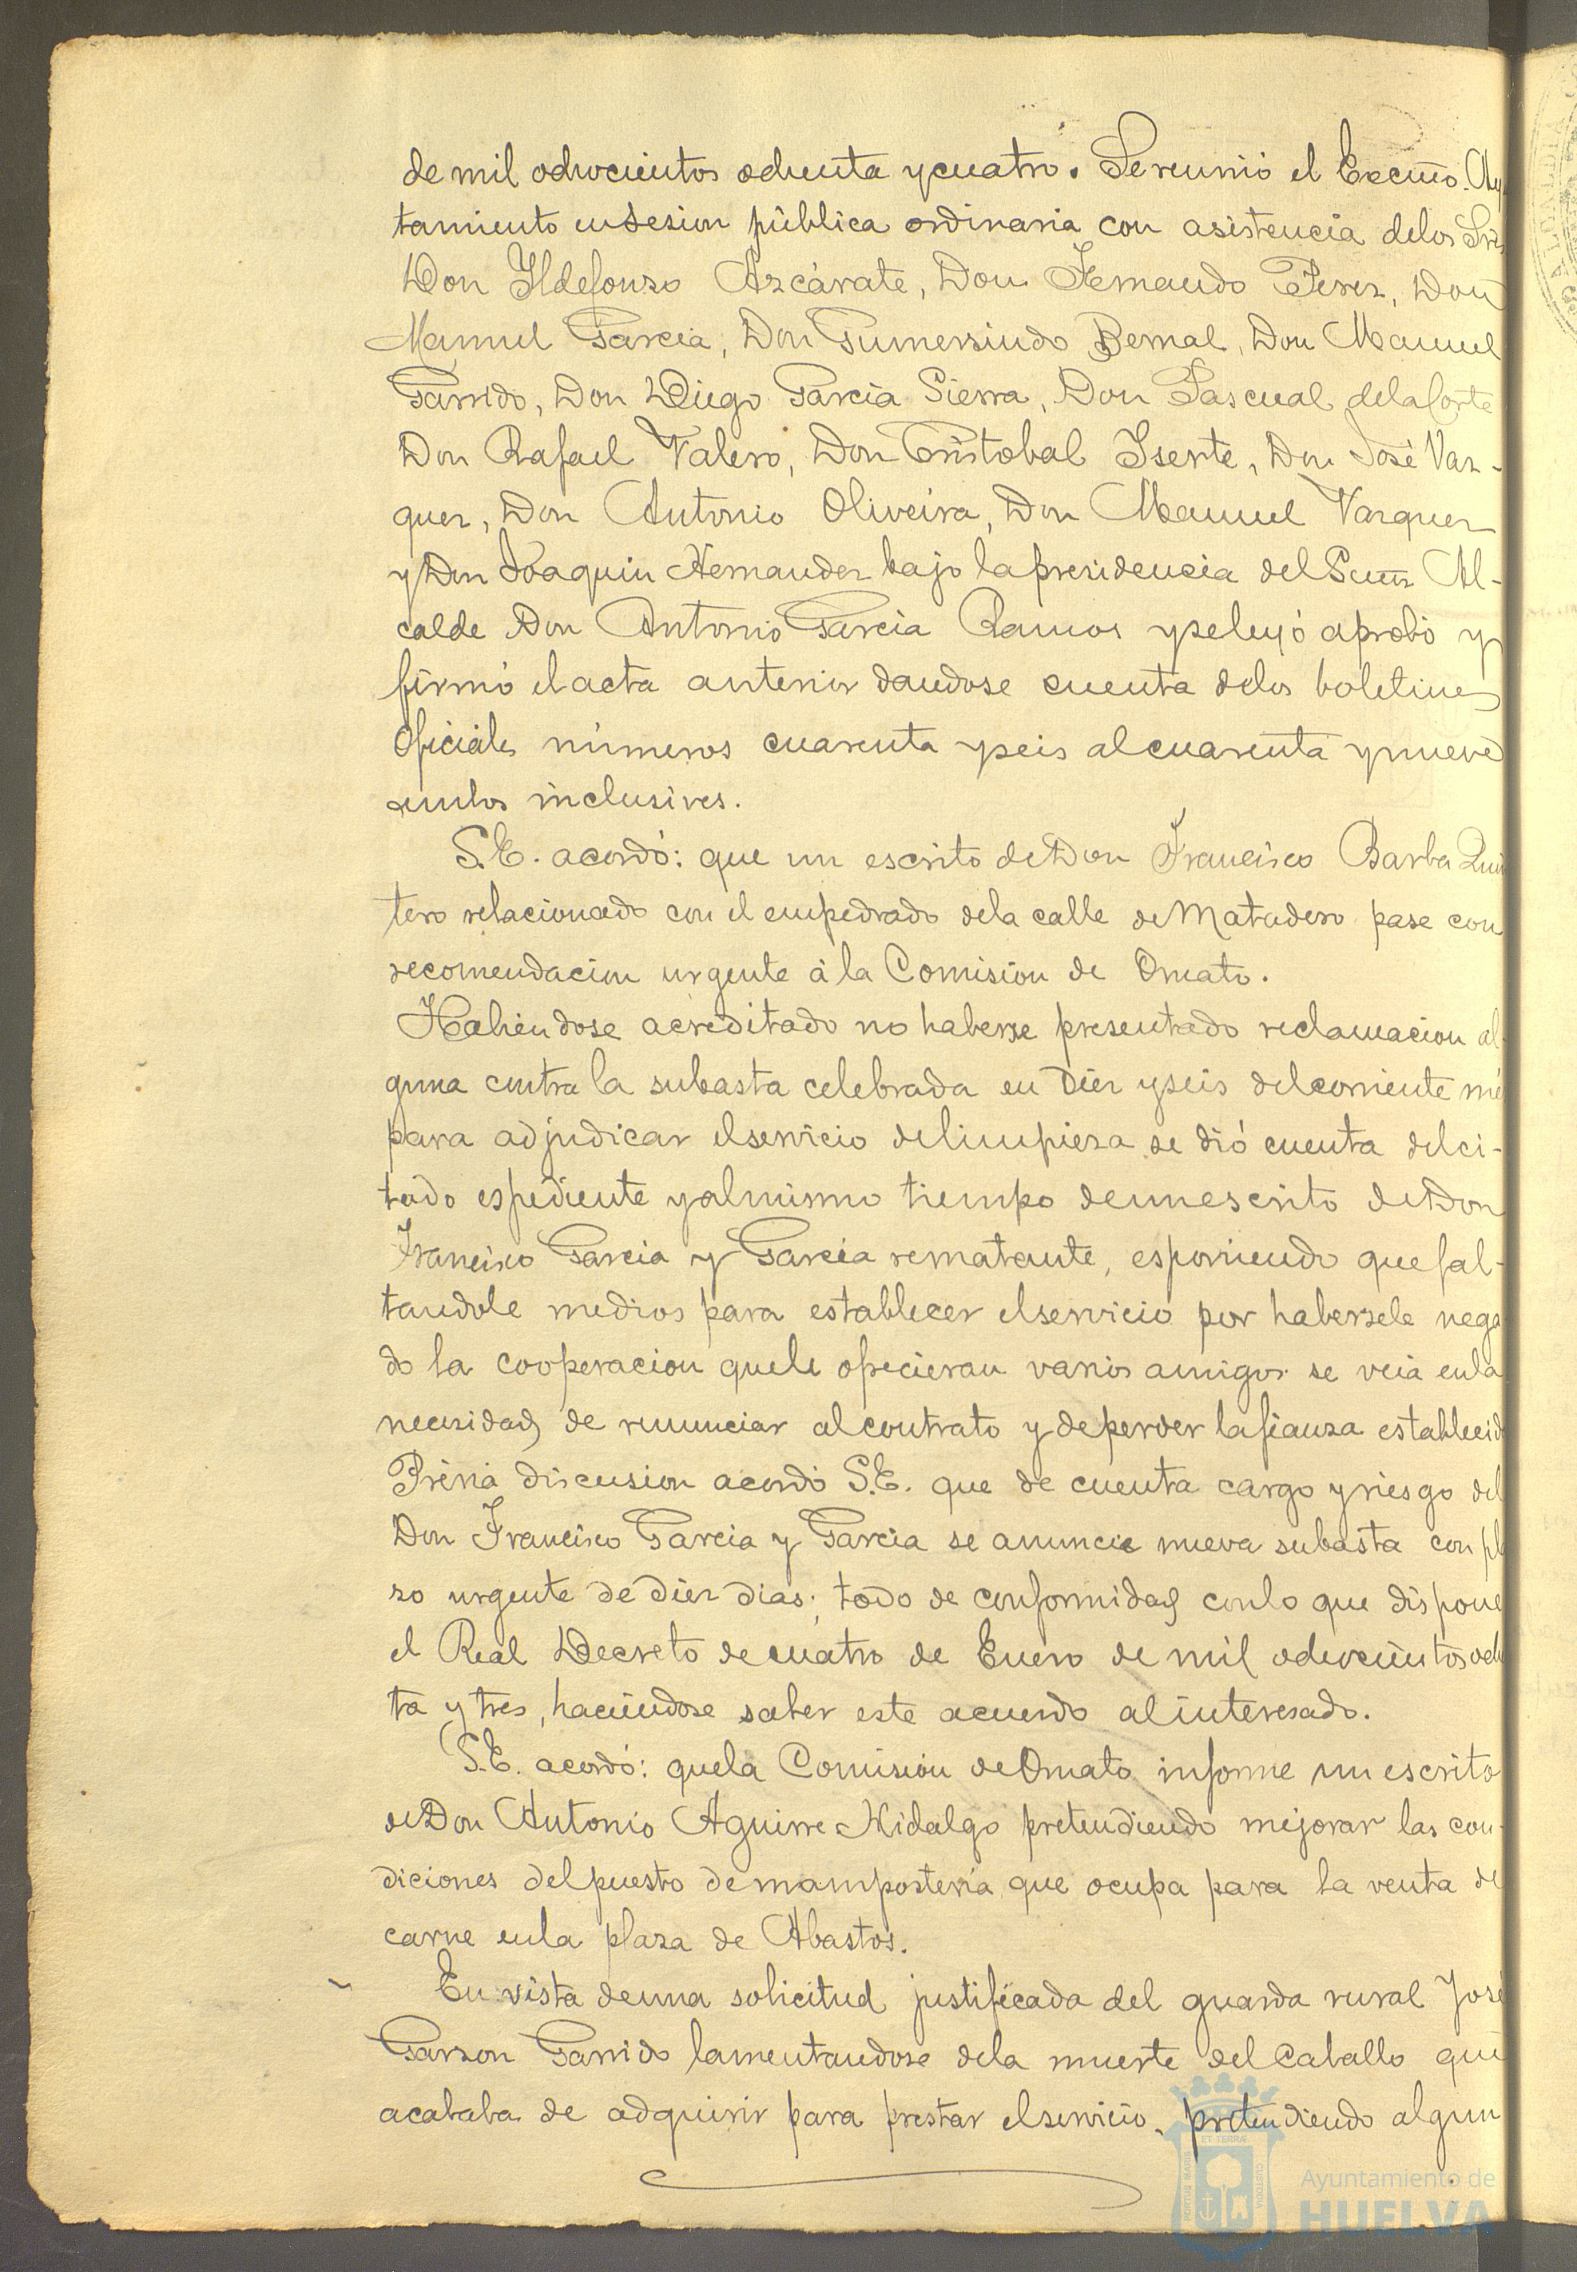 de mil ochocientos ochenta y cuatro. Se reunió el Excmo. Ay
tamiento en sesion pública ordinaria con asistencia de los Sres
Don Ildefonso Azcárate, Don Fernando Perez, Don
Manuel Garcia, Don Gumersindo Bernal, Don Manuel
Garrido, Don Diego Garcia Sierra, Don Pascual de la Corte
Don Rafael Valero, Don Cristobal Isente, Don José Vaz-
quez, Don Antonio Oliveira, Don Manuel Vazquez
y Don Joaquin Hernandez bajo la presidencia del Señr Al-
calde Don Antonio Garcia Ramos y se leyó aprobó y
firmó el acta anterior dandose cuenta de los boletines
Oficiales números cuarenta y seis al cuarenta y nueve
ambos inclusives.
S.E. acordó: que un escrito de Don Francisco Barba Quin
tero relacionado con el empedrado de la calle de Matadero pase con
recomendacion urgente á la Comision de Ornato.
Habiendose acreditado no haberse presentado reclamacion al-
guna contra la subasta celebrada en Diez y seis del corriente me
para adjudicar el servicio de limpieza se dió cuenta del ci-
tado espediente y al mismo tiempo de un escrito de Don
Francisco Garcia y Garcia rematante, esponiendo que fal-
tandole medios para establecer el servicio por habersele nega
do la cooperacion que le ofrecieran varios amigos se veia en la
necesidad de renunciar al contrato y de perder la fianza establecid
Prévia discusion acordó S.E. que de cuenta cargo y riesgo del
Don Francisco Garcia y Garcia se anuncie nueva subasta con pla
zo urgente de diez dias; todo de conformidad con lo que dispone
el Real Decreto de cuatro de Enero de mil ochocientos och
ta y tres, haciendose saber este acuerdo al interesado.
S.E. acordó: que la Comision de Ornato informe un escrito
de Don Antonio Aguirre Hidalgo pretendiendo mejorar las con-
diciones del puesto de mamposteria que ocupa para la venta de
carne en la plaza de Abastos.
En vista de una solicitud justificada del guarda rural José
Garzon Garrido lamentandose de la muerte del caballo que
acababa de adquirir para prestar el servicio, pretendiendo algun
Ayuntamiento de
HUELVA